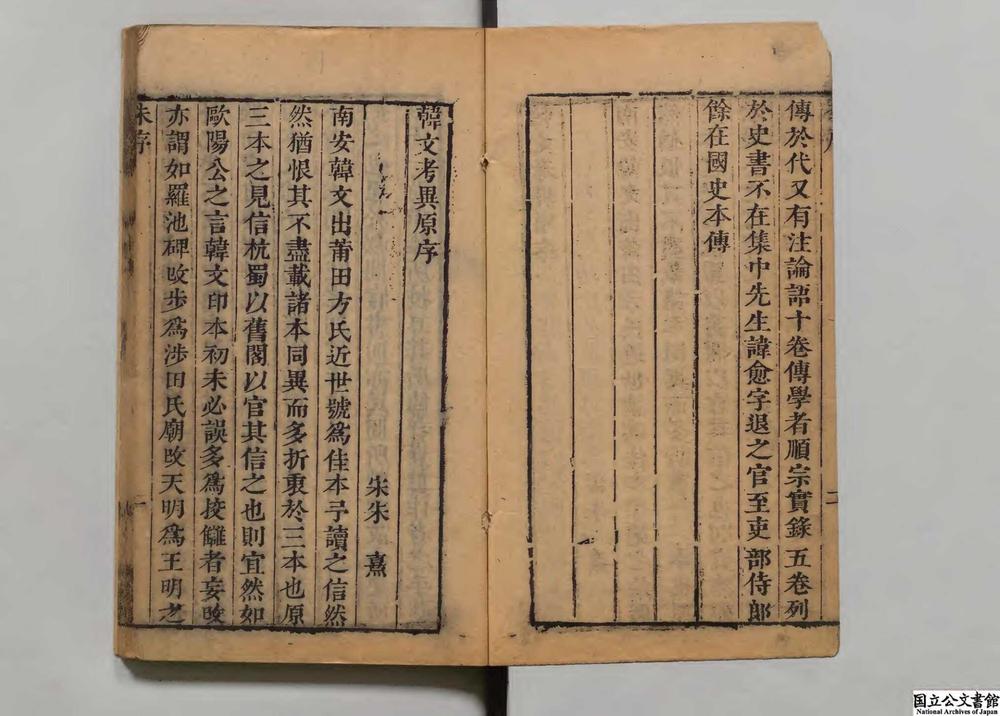 傳於代又有注論語十卷傳學者順宗實錄五卷列
於史書不在集中先生諱愈字退之官至吏部侍郎
餘在國史本傳
二
韓文考異原序
朱朱熹
南安韓文出莆田方氏近世號為佳本予讀之信然
然猶恨其不盡載諸本同異而多折衷於三本也原
三本之見信杭蜀以舊閣以官其信之也則宜然如
歐陽公之言韓文印本初未必誤多為挍讎者妄改
亦謂如羅池碑改步為涉田氏廟改天明為王明之
朱序
一
国立公文書館
National Archives of Japan